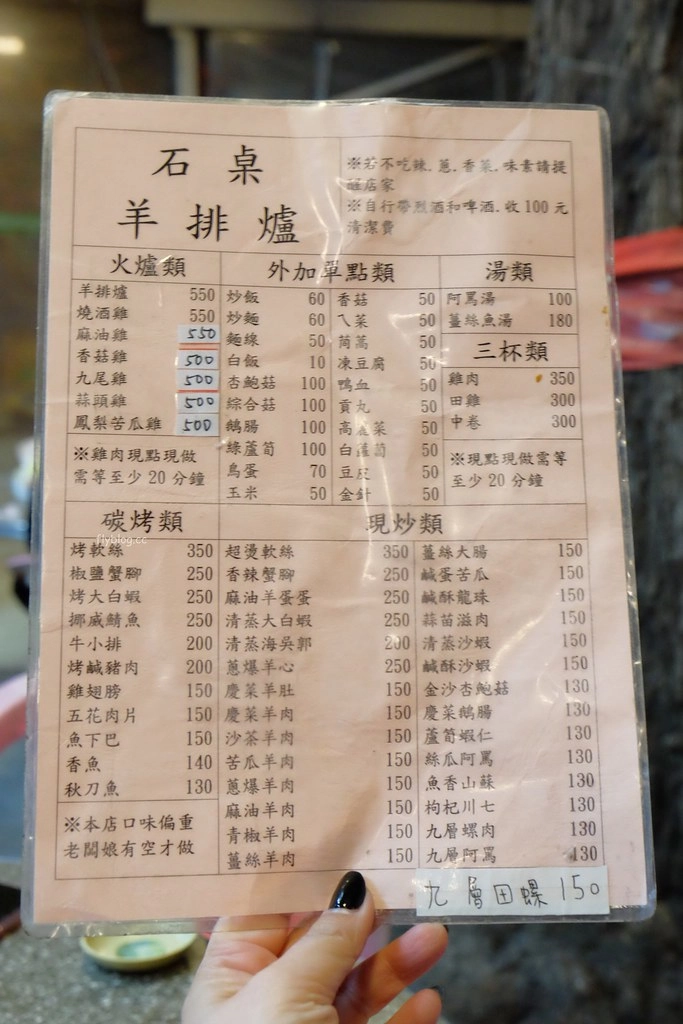 石桌
羊排爐
※若不吃辣.蔥.香菜.味素請提
醒店家
※自行帶烈酒和啤酒.收100元
清潔費
火爐類
羊排爐 550
燒酒雞 550
麻油雞 550
香菇雞 500
九尾雞 500
蒜頭雞 500
鳳梨苦瓜雞 500
※雞肉現點現做
需等至少20分鐘
外加單點類
炒飯 60
炒麵 60
麵線 50
白飯 10
杏鮑菇 100
綜合菇 100
鵝腸 100
綠蘆筍 100
鳥蛋 70
玉米 50
香菇 50
ㄟ菜 50
茼萵 50
凍豆腐 50
鴨血 50
貢丸 50
高麗菜 50
白蘿蔔 50
豆皮 50
金針 50
湯類
阿罵湯 100
薑絲魚湯 180
三杯類
雞肉 350
田雞 300
中卷 300
※現點現做需等
至少20分鐘
碳烤類
flyblog.cc
烤軟絲 350
椒鹽蟹腳 250
烤大白蝦 250
挪威鯖魚 250
牛小排 200
烤鹹豬肉 200
雞翅膀 150
五花肉片 150
魚下巴 150
香魚 140
秋刀魚 130
※本店口味偏重
老闆娘有空才做
現炒類
超燙軟絲 350
香辣蟹腳 250
麻油羊蛋蛋 250
清蒸大白蝦 250
清蒸海吳郭 200
蔥爆羊心 250
慶菜羊肚 150
慶菜羊肉 150
沙茶羊肉 150
苦瓜羊肉 150
蔥爆羊肉 150
麻油羊肉 150
青椒羊肉 150
薑絲羊肉 150
薑絲大腸 150
鹹蛋苦瓜 150
鹹酥龍珠 150
蒜苗滋肉 150
清蒸沙蝦 150
鹹酥沙蝦 150
金沙杏鮑菇 130
慶菜鵝腸 130
蘆筍蝦仁 130
絲瓜阿罵 130
魚香山蘇 130
枸杞川七 130
九層螺肉 130
九層阿罵 130
九層田螺 150